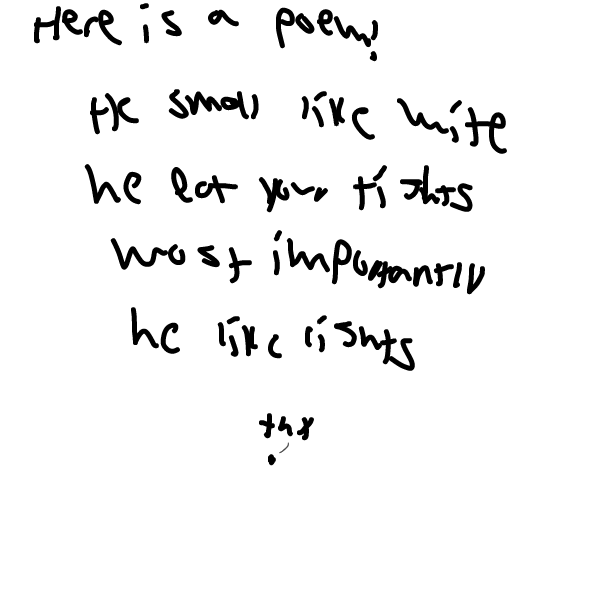 Here is a poem!
He small like mite
he eat your tights
most importantly
he like lights
thx